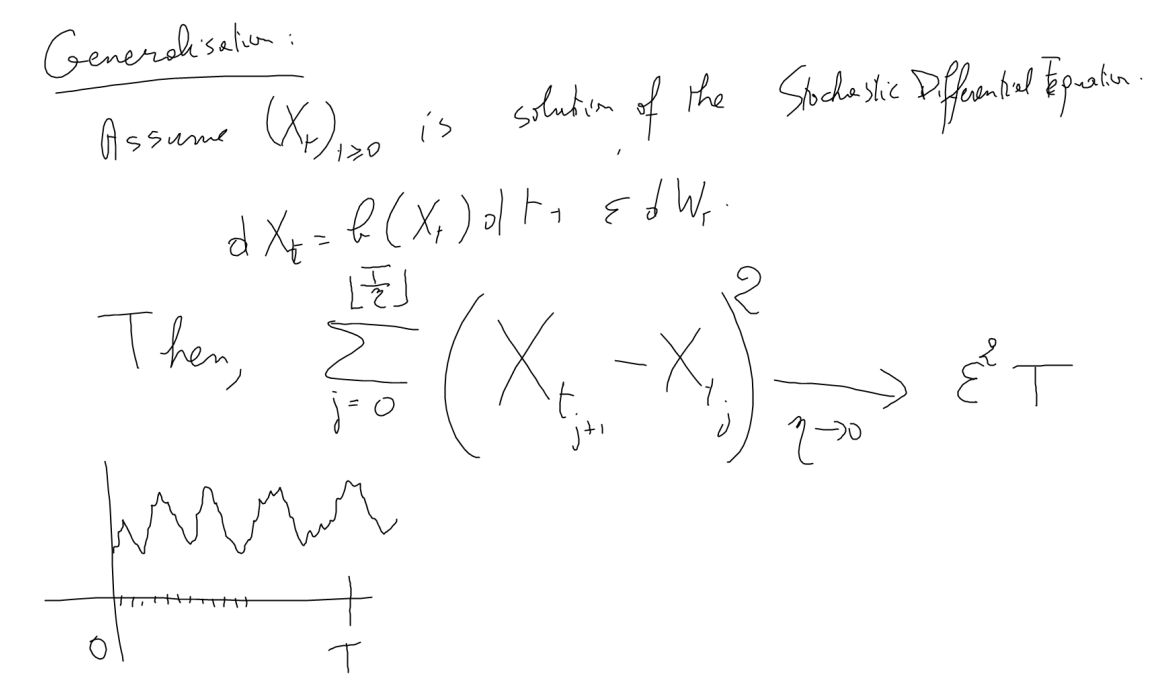 Generalisation:
Assume (X_t)_{t≥0} is solution of the Stochastic Differential Equation.
dX_t = b(X_t)dt + ε dW_t.
Then, ∑_{j=0}^{⌊T/η⌋} (X_{t_{j+1}} − X_{t_j})² ⟶_{η→0} ε² T
0 T